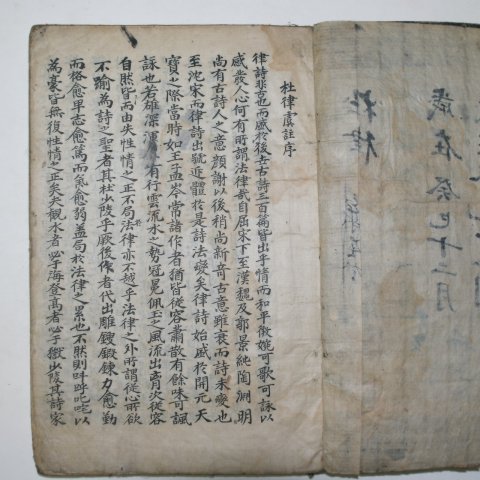 杜律虞註序
律詩非古也而盛於後世古詩三百篇皆出乎情而和平微婉可歌可詠以
感發人心何有所謂法律哉自屈宋下至漢魏及郭景純陶淵明
尚有古詩人之意顏謝以後稍尚新奇古意雖衰而詩未變也
至沈宋而律詩出號近體於是詩法變矣律詩始盛於開元天
寶之際當時如王孟岑常諸作者猶皆從容蕭散有餘味可諷
詠也若雄深渾 有行雲流水之勢冠冕佩玉之風流出胷次從容
自然皆而由夫性情之正不局於法律亦不越乎法律之外所謂從心所欲
不踰為詩之聖者其杜少陵乎厥後作者代出雕鎪鍛鍊力愈勤
而格愈卑志愈篤而氣愈弱蓋局於法律之累也不然則叫呼叱咤以
為豪皆無復性情之正矣夫觀水者必于海登高者必于嶽少陵其詩家
歲在癸巳十二月
杜律